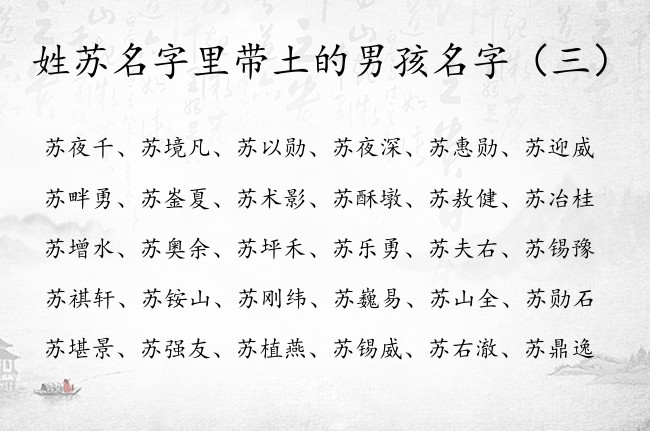 姓苏名字里带土的男孩名字（三）
苏夜千、苏境凡、苏以勋、苏夜深、苏惠勋、苏迎威
苏畔勇、苏崟夏、苏术影、苏酥墩、苏敖健、苏冶桂
苏增水、苏奥余、苏坪禾、苏乐勇、苏夫右、苏锡豫
苏祺轩、苏铵山、苏刚纬、苏巍易、苏山全、苏勋石
苏堪景、苏强友、苏植燕、苏锡威、苏右澈、苏鼎逸